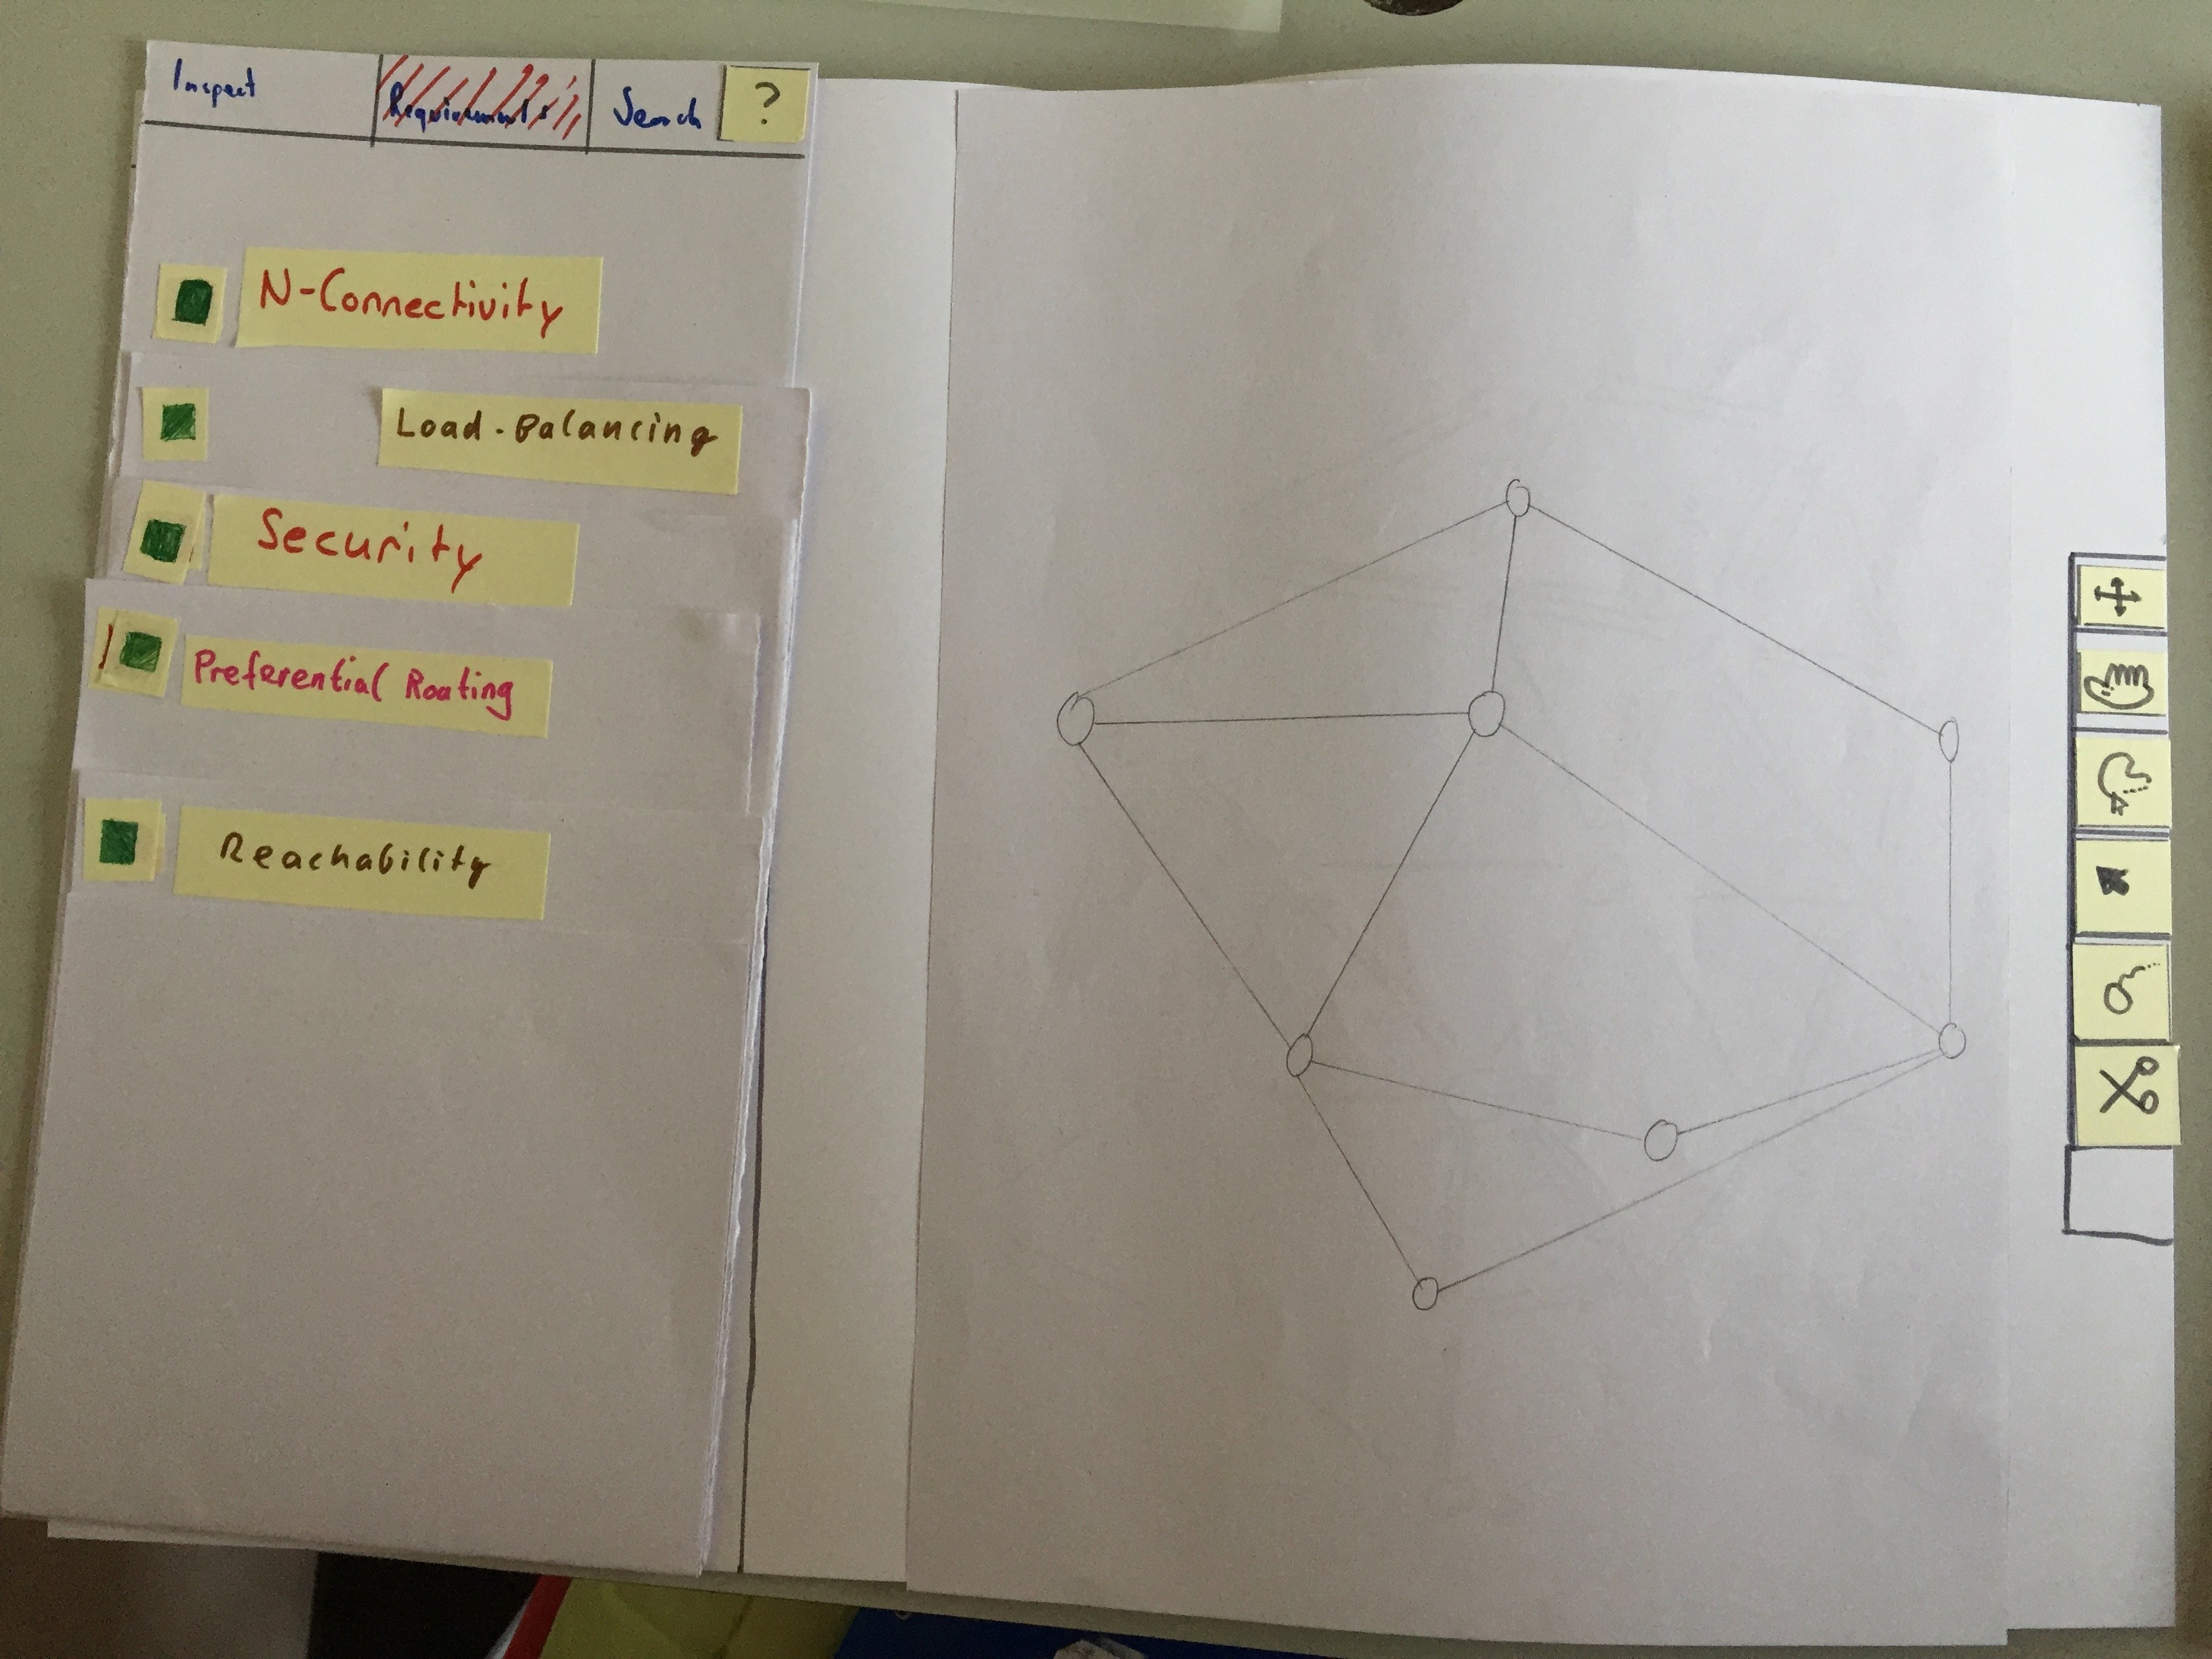 Inspect
Requirements
Search
?
N-Connectivity
Load-Balancing
Security
Preferential Routing
Reachability